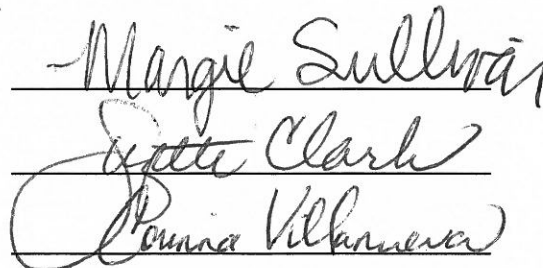 Margie Sullivan
Yvette Clark
Corinna Villanueva